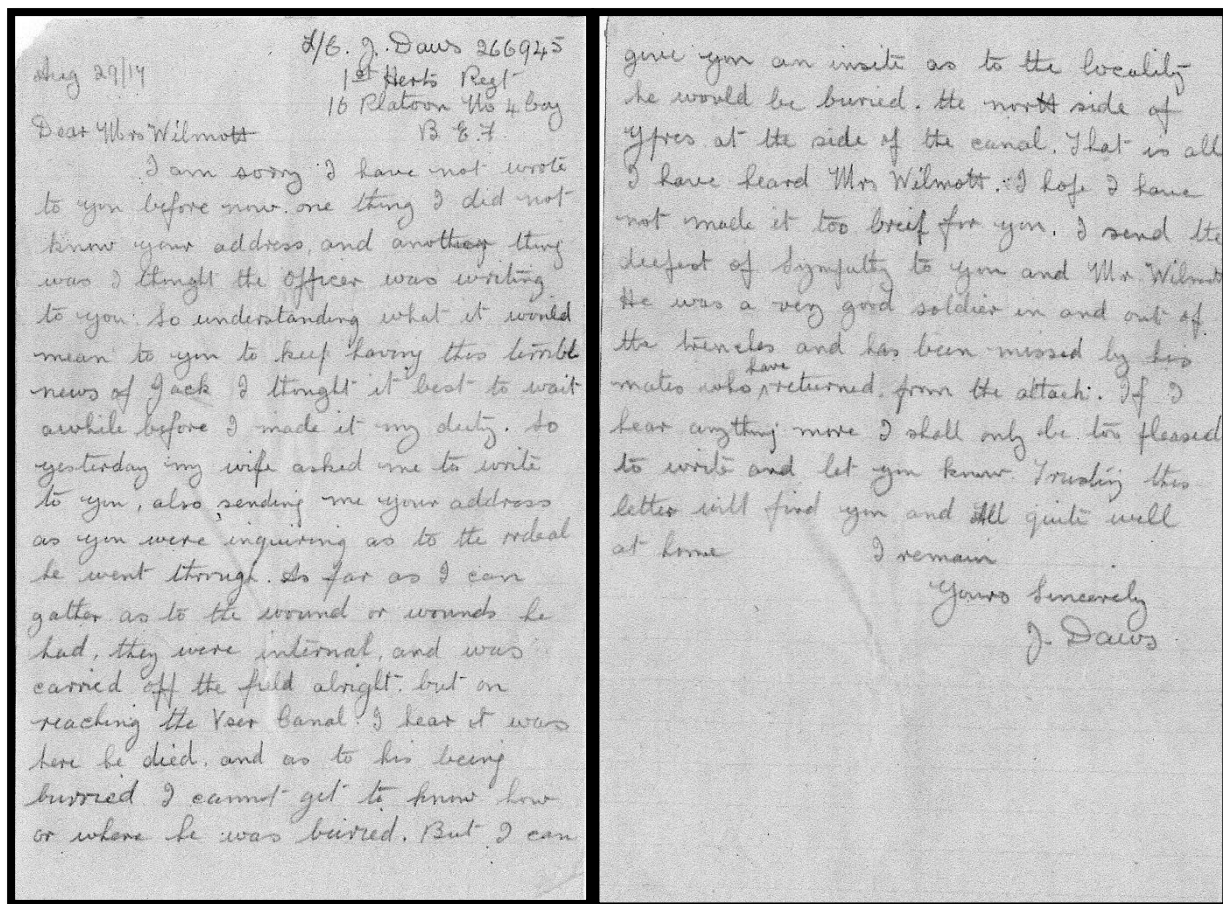 L/C. J. Daws 266945
Aug 29/17
1st Herts Regt
16 Platoon No 4 Coy
B E F
Dear Mrs Wilmott
I am sorry I have not wrote
to you before now. one thing I did not
know your address, and another thing
was I thought the officer was writing
to you. So understanding what it would
mean to you to keep having this terrible
news of Jack I thought it best to wait
awhile before I made it my duty. So
yesterday my wife asked me to write
to you, also sending me your address
as you were inquiring as to the ordeal
he went through. As far as I can
gather as to the wound or wounds he
had, they were internal, and was
carried off the field alright. but on
reaching the Yser Canal I hear it was
here he died. and as to his being
burried I cannot get to know how
or where he was buried. But I can
give you an insite as to the locality
he would be buried. the north side of
Ypres at the side of the canal. That is all
I have heard Mrs Wilmott. I hope I have
not made it too breif for you. I send the
deepest of Sympathy to you and Mr Wilmott
He was a very good soldier in and out of
the trenches and has been missed by his
mates who have returned from the attack. If I
hear anything more I shall only be too pleased
to write and let you know. Trusting this
letter will find you and All quite well
at home I remain
Yours Sincerely
J. Daws